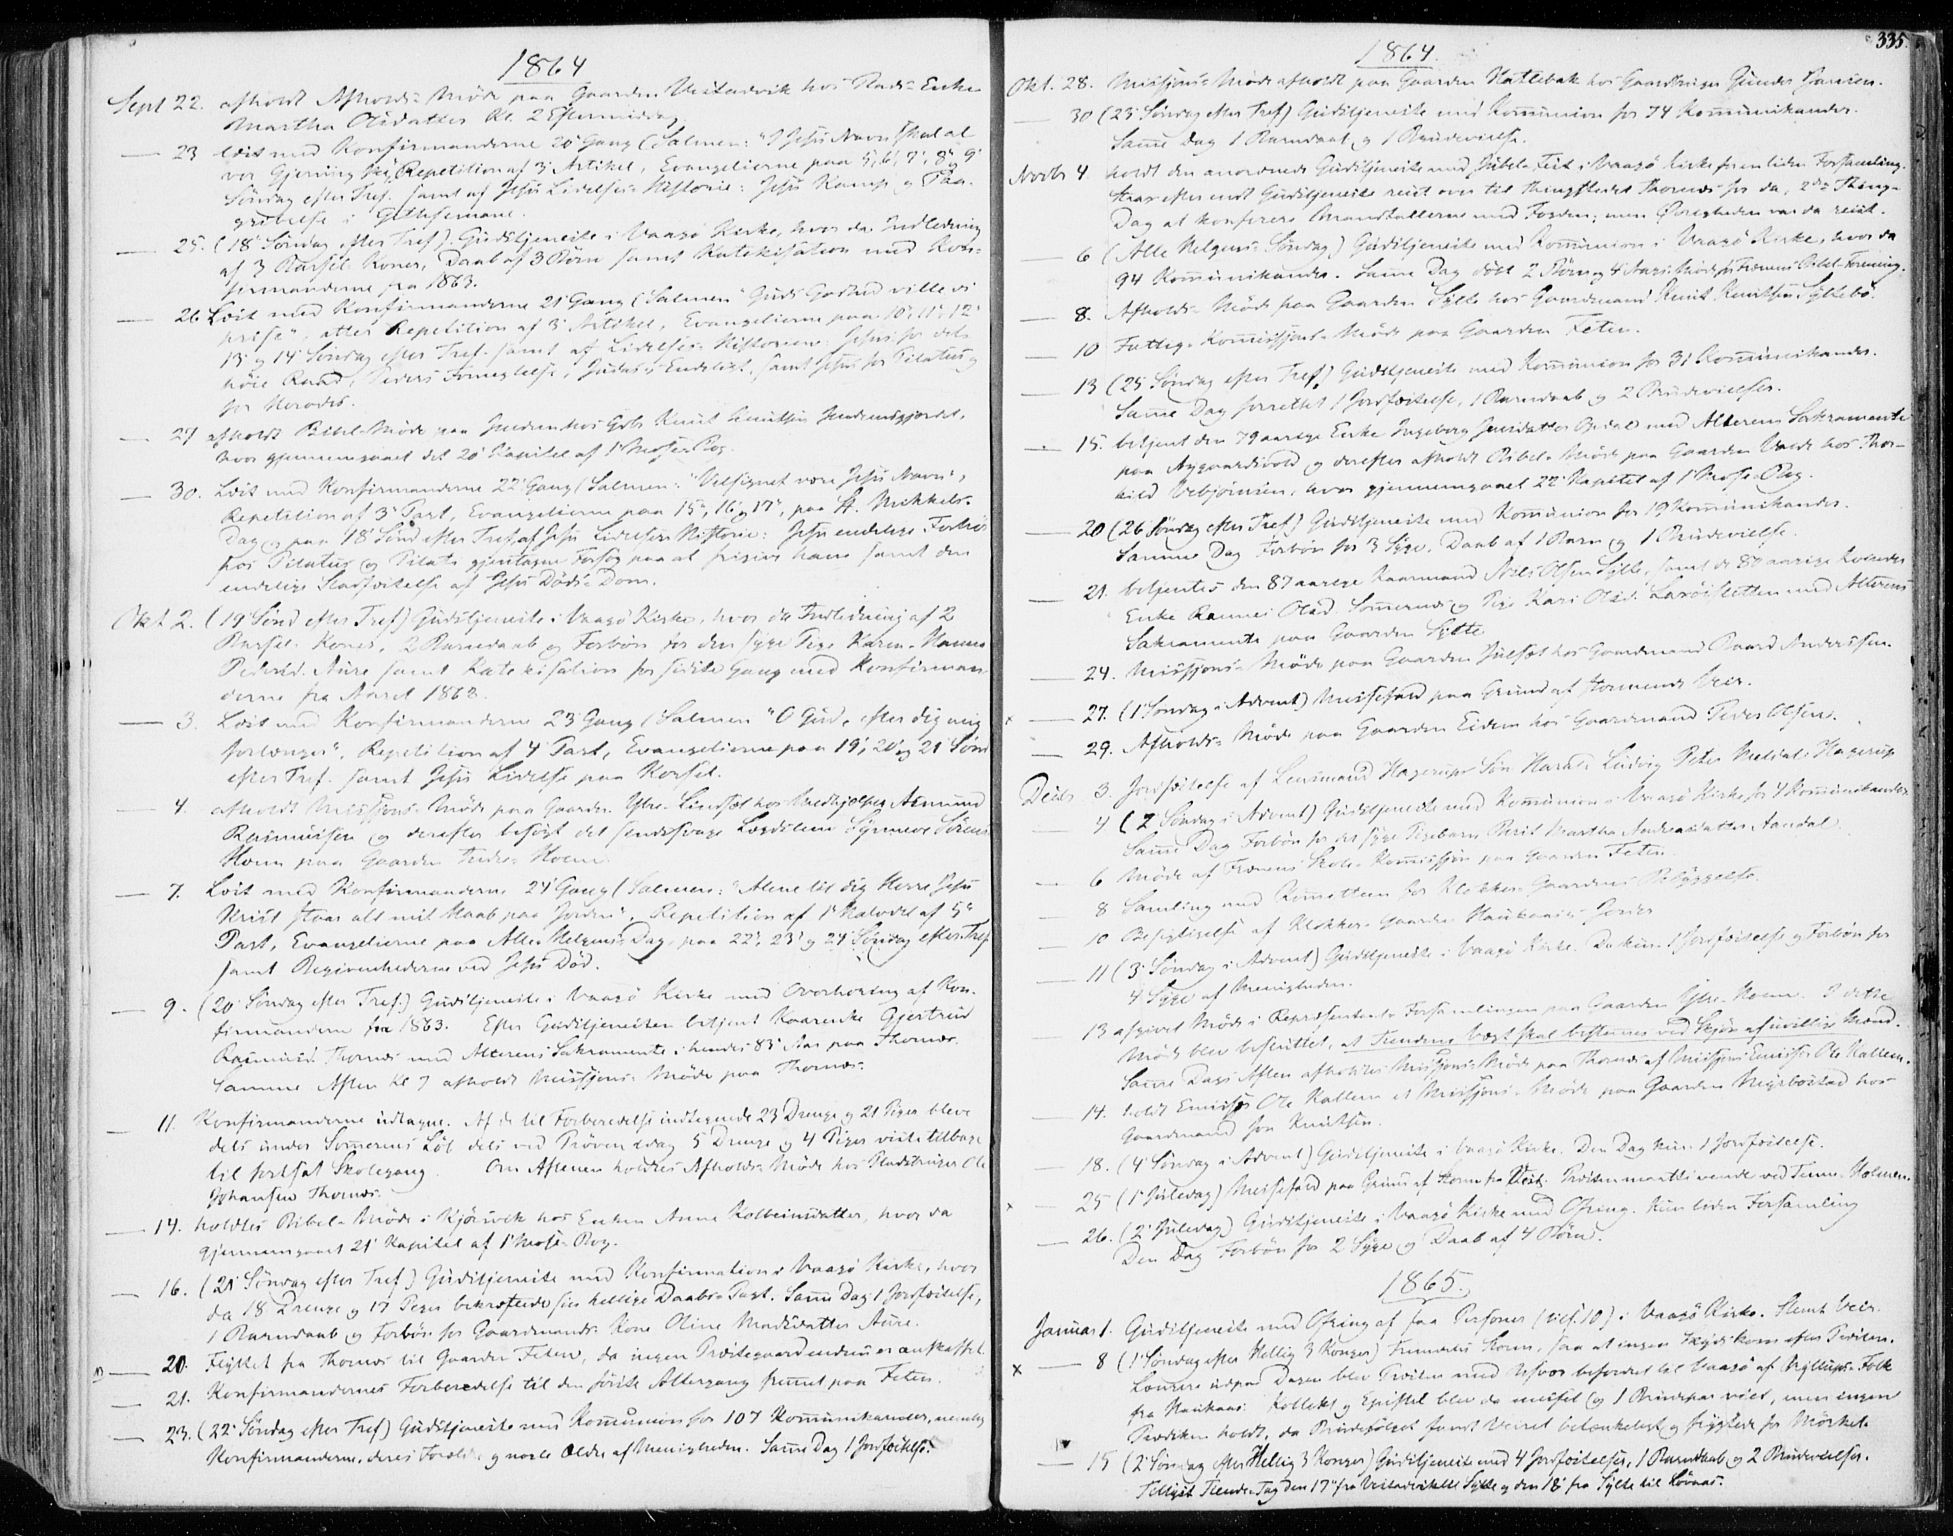 1864
Sept 22. afholdt Afholds-Møde paa Gaarden Vestadvik hos Plads-Enke
Martha Olsdatter Kl. 2 Eftermiddag
— 23 læst med Konfirmanderne 20' Gang (Salmen: "I Jesu Navn skal al
vor Gjerning ske, Repetition af 3' Artikel, Evangelierne paa 5', 6', 7', 8' og 9'
Søndag efter Tref. samt af Jesu Lidelses Historie: Jesu Kamp og Paa-
gribelse i Gethsemane.
— 25. (18' Søndag efter Tref) Gudstjeneste i Vaagø Kirke, hvor da Indledning
af 3 Barsel-Koner, Daab af 3 Børn samt Katekisation med Kon-
firmanderne fra 1863.
— 26 Læst med Konfirmanderne 21' Gang (Salmen "Guds Godhed ville vi
prise", atter Repetition af 3' Artikel, Evangelierne paa 10', 11', 12'
13' og 14' Søndag efter Tref. samt af Lidelses-Historien: Jesus for det
høie Raad, Peders Fornegtelse, Judas's Endeligt, samt Jesus for Pilatus og
for Herodes.
— 27 afholdt Bibel-Møde paa hos Gbr. Knut Knutsen
hvor gjennemgaaet det 20' Kapitel af 1' Mose-Bog.
— 30. Læst med Konfirmanderne 22' Gang (Salmen: "Velsignet være Jesu Navn",
Repetition af 3' Part, Evangelierne paa 15', 16' og 17', paa St. Mikkels-
Dag og paa 18' Sønd efter Tref, af Jesu Lidelses Historie: Jesu endelige Forhør
hos Pilatus og Pilati gjentagne Forsøg paa at frigive ham samt den
endelige Stadfæstelse af Jesu Døds-Dom.
Okt 2. (19' Sønd efter Tref) Gudstjeneste i Vaagø Kirke, hvor da Indledning af 2
Barsel-Koner, 2 Barnedaab og Forbøn for den syge Pige Karen-Hanna
Pedersd. Aure samt Katekisation for sidste Gang med Konfirman-
derne fra Aaret 1863.
— 3. Læst med Konfirmanderne 23' Gang (Salmen "O Gud, efter dig mig
forlænges", Repetition af 4' Part, Evangelierne paa 19', 20' og 21' Sønd
efter Tref. samt Jesu Lidelse paa Korset.
— 4. afholdt Missions-Møde paa Gaarden Ytre-Lindset hos Medhjælper Asmund
Rasmussen og derefter besøgt det sindssvage Lægdslem Synneve Sørens-
Hoem paa Gaarden Indre-Hoem.
— 7. Læst med Konfirmanderne 24' Gang (Salmen: "Alene til dig Herre Jesu
Krist staar alt mit Haab paa Jorden". Repetition af 1' Halvdel af 5'
Part, Evangelierne paa Alle-Helgens-Dag, paa 22', 23' og 24' Søndag efter Tref
samt Begivenhederne ved Jesu Død.
— 9. (20' Søndag efter Tref.) Gudstjeneste i Vaagø Kirke med Overhøring af Kon-
firmanderne fra 1863. Efter Gudstjenesten betjent Kaarenke Gjertrud
Rasmusd. Thornes med Alterens Sakramente i hendes 83' Aar paa Thornes.
Samme Aften Kl 7 afholdt Missions-Møde paa Thornes.
— 11. Konfirmanderne udtagne. Af de til Forberedelse indtegnede 23 Drenge og 21 Piger bleve
dels under Sommerens Løb dels ved Prøven idag 5 Drenge og 4 Piger viste tilbage
til fortsat Skolegang. Om Aftenen holdtes Afholds-Møde hos Pladsbruger Ole
Johansen Thornes.
— 14. holdtes Bibel-Møde i Kjørsvik hos Enken Anne Kolbeinsdatter, hvor da
gjennemgaaet 21' Kapitel af 1' Mose-Bog.
— 16. (21' Søndag efter Tref.) Gudstjeneste med Konfirmation i Vaagø Kirke, hvor
da 18 Drenge og 17 Piger bekræftede sin hellige Daabs-Pagt. Samme Dag 1 Jordfæstelse,
1 Barnedaab og Forbøn for Gaardmands-Kone Oline Madsdatter Aure.
— 20. Flyttet fra Thornes til Gaarden Feten, da ingen Præstegaard endnu er anskaffet.
— 21. Konfirmandernes Forberedelse til den første Altergang fremmet paa Feten.
— 23. (22' Søndag efter Tref) Gudstjeneste med Kommunion for 107 Kommunikanter, nemlig
Konfirmanderne, deres Forældre og nogle Ældre af Menigheden. Samme Dag 1 Jordfæstelse.
335.
1864.
Okt. 28. Missions-Møde afholdt paa Gaarden Hatlebak hos Gaardbruger Gunder Hansen.
— 30 (23' Søndag efter Tref) Gudstjeneste med Kommunion for 74 Kommunikanter.
Samme Dag 1 Barnedaab og 1 Brudevielse.
Novbr 4 holdt den anordnede Gudstjeneste med Jubel-Fest i Vaagø Kirke for en liden Forsamling.
Strax efter endt Gudstjeneste reist over til Thingstedet Thornes for da, 2den Thing-
Dag at konferere Mandtallerne med Fogden; men Øvrigheden var da reist.
— 6 (Alle Helgens-Søndag) Gudstjeneste med Kommunion i Vaagø Kirke, hvor da
94 Kommunikanter. Samme Dag døbt 2 Børn og 4' Aars Møde for Frænens Bibel-Forening.
— 8. Afholds-Møde paa Gaarden Sylte hos Gaardmand Knut Knutsen Syltebø.
— 10 Fattig-Kommissions-Møde paa Gaarden Feten.
— 13 (25' Søndag efter Tref) Gudstjeneste med Kommunion for 31 Kommunikanter.
Samme Dag forrettet 1 Jordfæstelse, 1 Barnedaab og 2 Brudevielser.
— 15. betjent den 79aarige Enke Ingeborg med Alterens Sakramente
paa og derefter afholdt Bibel-Møde paa Gaarden hos Thor-
kild Vebjørnsen, hvor gjennemgaaet 22' Kapitel af 1' Mose-Bog.
— 20 (26' Søndag efter Tref) Gudstjeneste med Kommunion for 19 Kommunikanter.
Samme Dag Forbøn for 3 Syge, Daab af 1 Barn og 1 Brudevielse.
— 21. betjentes den 87aarige Kaarmand Nils Olsen Sylte, samt de 80aarige Kvinder
Enke Olsd. og Pige Kari Olsd. med Alterens
Sakramente paa Gaarden Sylte
— 24. Missions-Møde paa Gaarden Julset hos Gaardmand Baard Anderssen.
x — 27. (1' Søndag i Advent) Messefald paa Grund af stormende Veir.
— 29. Afholds-Møde paa Gaarden Eidem hos Gaardmand Peder Olsen.
Decbr 3. Jordfæstelse af Lensmand Hagerups Søn Harald Ludvig Peter Meldal Hagerup
— 4 (2' Søndag i Advent) Gudstjeneste med Kommunion i Vaagø Kirke for 4 Kommunikanter
Samme Dag Forbøn for det syge Pigebarn Berit Martha Andreasdatter Aandal.
— 6 Møde af Frænens Skole-Kommission paa Gaarden Feten
— 8 Samling med Komitteen for Klokker-Gaardens Bebyggelse.
— 10 Besigtigelse af Klokker-Gaarden Haukaas's Jorder
— 11 (3' Søndag i Advent) Gudstjeneste i Vaagø Kirke. Da kun 1 Jordfæstelse og Forbøn for
4 Syge af Menigheden.
— 13 afgivet Møde i Repræsentant-Forsamlingen paa Gaarden Ytre-Hoem. I dette
Møde blev besluttet, at Tiendens Vægt skal bestemmes ved Skjøn af uvillige Mænd.
Samme Dags Aften afholdtes Missions-Møde paa Thornes af Missions-Emissær Ole Kallem.
— 14. holdt Emissær Ole Kallem et Missions-Møde paa Gaarden Myrbostad hos
Gaardmand Jon Knutsen.
— 18. (4' Søndag i Advent) Gudstjeneste i Vaagø Kirke. Den Dag kun 1 Jordfæstelse.
x — 25 (1' Juledag) Messefald paa Grund af Storm fra Vest. Præsten maatte vende ved Holmen.
— 26. (2' Juledag) Gudstjeneste i Vaagø Kirke med Ofring. Kun liden Forsamling
Den Dag Forbøn for 2 Syge og Daab af 4 Børn.
1865.
Januar 1. Gudstjeneste med Ofring af faa Personer (circ. 10) i Vaagø Kirke. Slemt Veir.
x — 8 (1' Søndag efter Hellig 3 Konger) Storm, saa at ingen Skyds kom efter Præsten.
Længere udpaa Dagen blev Præsten med befordret til Vaagø af Bryllups-Folk
fra Haukaas: Kollekt og Epistel blev da messet og 1 Brudepar viet, men ingen
Prædiken holdt, da Brudefølget fandt Veiret betænkeligt og frygtede for Mørket.
— 15 (2' Søndag efter Hellig 3 Konger) Gudstjeneste med 4 Jordfæstelser, 1 Barnedaab og 2 Brudevielser.
Tillyst Tiende-Tag den 17' fra til Sylte og den 18' fra Sylte til Løvaas.